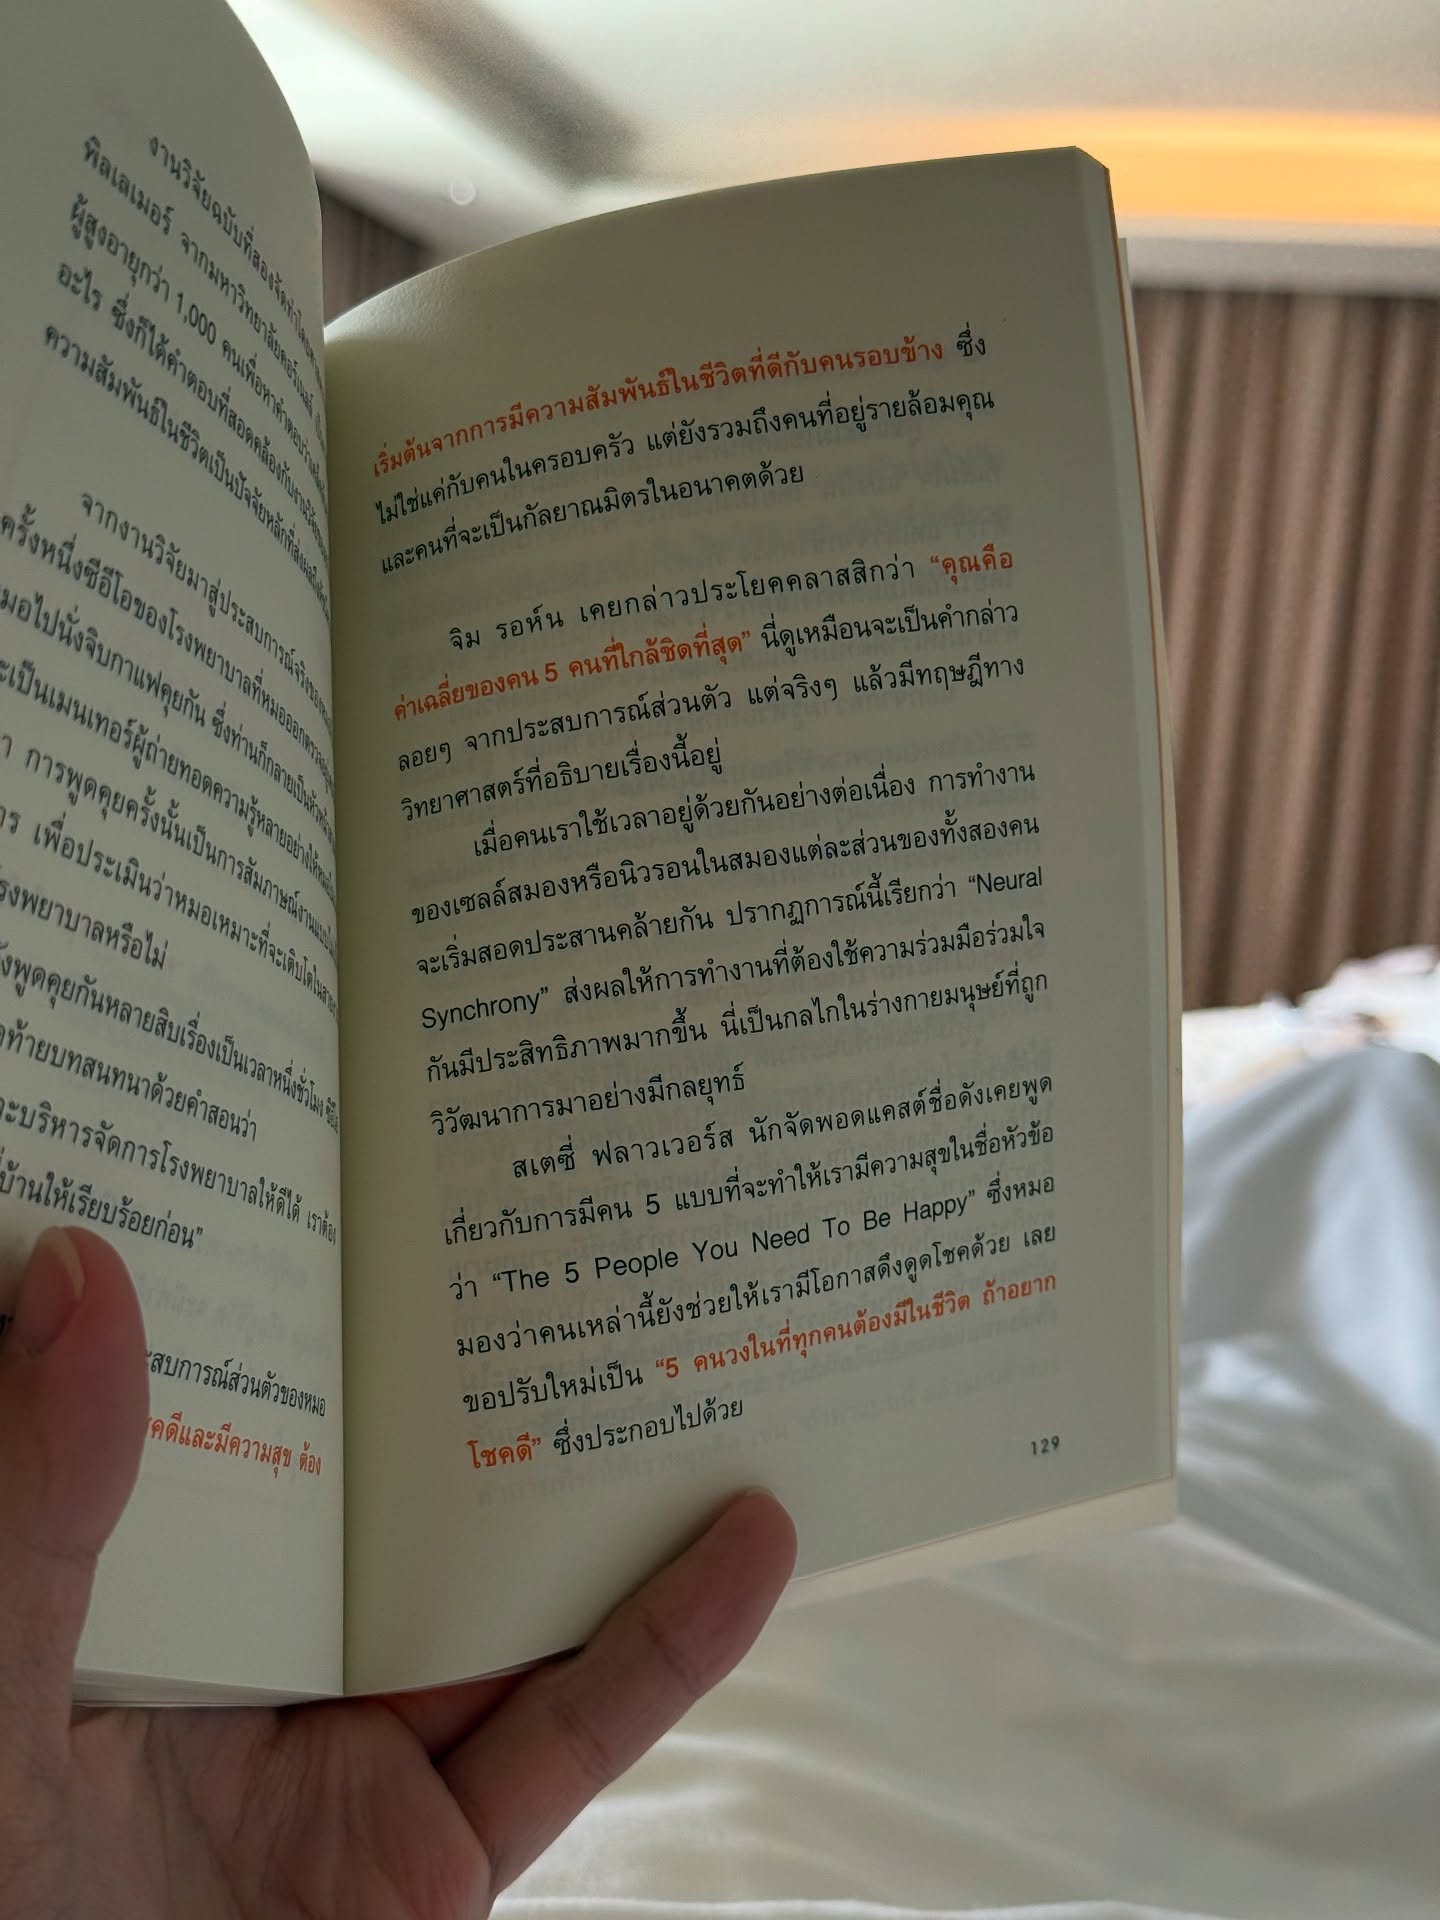 งานวิจัยฉบับที่สองจัดทำโดย
พิลเลเมอร์ จากมหาวิทยาลัยคอร์เนลล์
ผู้สูงอายุกว่า 1,000 คนเพื่อหาคำตอบว่า
อะไร ซึ่งก็ได้คำตอบที่สอดคล้องกับงานวิจัย
ความสัมพันธ์ในชีวิตเป็นปัจจัยหลักที่ส่งผล
จากงานวิจัยมาสู่ประสบการณ์จริงของ
ครั้งหนึ่งซีอีโอของโรงพยาบาลที่หมอออกตรวจ
ไปนั่งจิบกาแฟคุยกัน ซึ่งท่านก็กลายเป็นหัวหน้า
เป็นเมนเทอร์ผู้ถ่ายทอดความรู้หลายอย่างให้
การพูดคุยครั้งนั้นเป็นการสัมภาษณ์งานแบบ
เพื่อประเมินว่าหมอเหมาะที่จะเติบโตใน
โรงพยาบาลหรือไม่
พูดคุยกันหลายสิบเรื่องเป็นเวลาหนึ่งชั่วโมง
ท้ายบทสนทนาด้วยคำสอนว่า
จะบริหารจัดการโรงพยาบาลให้ดีได้ เราต้อง
บ้านให้เรียบร้อยก่อน”
ประสบการณ์ส่วนตัวของหมอ
โชคดีและมีความสุข ต้อง
เริ่มต้นจากการมีความสัมพันธ์ในชีวิตที่ดีกับคนรอบข้าง ซึ่ง
ไม่ใช่แค่กับคนในครอบครัว แต่ยังรวมถึงคนที่อยู่รายล้อมคุณ
และคนที่จะเป็นกัลยาณมิตรในอนาคตด้วย
จิม รอห์น เคยกล่าวประโยคคลาสสิกว่า “คุณคือ
ค่าเฉลี่ยของคน 5 คนที่ใกล้ชิดที่สุด” นี่ดูเหมือนจะเป็นคำกล่าว
ลอยๆ จากประสบการณ์ส่วนตัว แต่จริงๆ แล้วมีทฤษฎีทาง
วิทยาศาสตร์ที่อธิบายเรื่องนี้อยู่
เมื่อคนเราใช้เวลาอยู่ด้วยกันอย่างต่อเนื่อง การทำงาน
ของเซลล์สมองหรือนิวรอนในสมองแต่ละส่วนของทั้งสองคน
จะเริ่มสอดประสานคล้ายกัน ปรากฏการณ์นี้เรียกว่า “Neural
Synchrony” ส่งผลให้การทำงานที่ต้องใช้ความร่วมมือร่วมใจ
กันมีประสิทธิภาพมากขึ้น นี่เป็นกลไกในร่างกายมนุษย์ที่ถูก
วิวัฒนาการมาอย่างมีกลยุทธ์
สเตซี่ ฟลาวเวอร์ส นักจัดพอดแคสต์ชื่อดังเคยพูด
เกี่ยวกับการมีคน 5 แบบที่จะทำให้เรามีความสุขในชื่อหัวข้อ
ว่า “The 5 People You Need To Be Happy” ซึ่งหมอ
มองว่าคนเหล่านี้ยังช่วยให้เรามีโอกาสดึงดูดโชคด้วย เลย
ขอปรับใหม่เป็น “5 คนวงในที่ทุกคนต้องมีในชีวิต ถ้าอยาก
โชคดี” ซึ่งประกอบไปด้วย
129